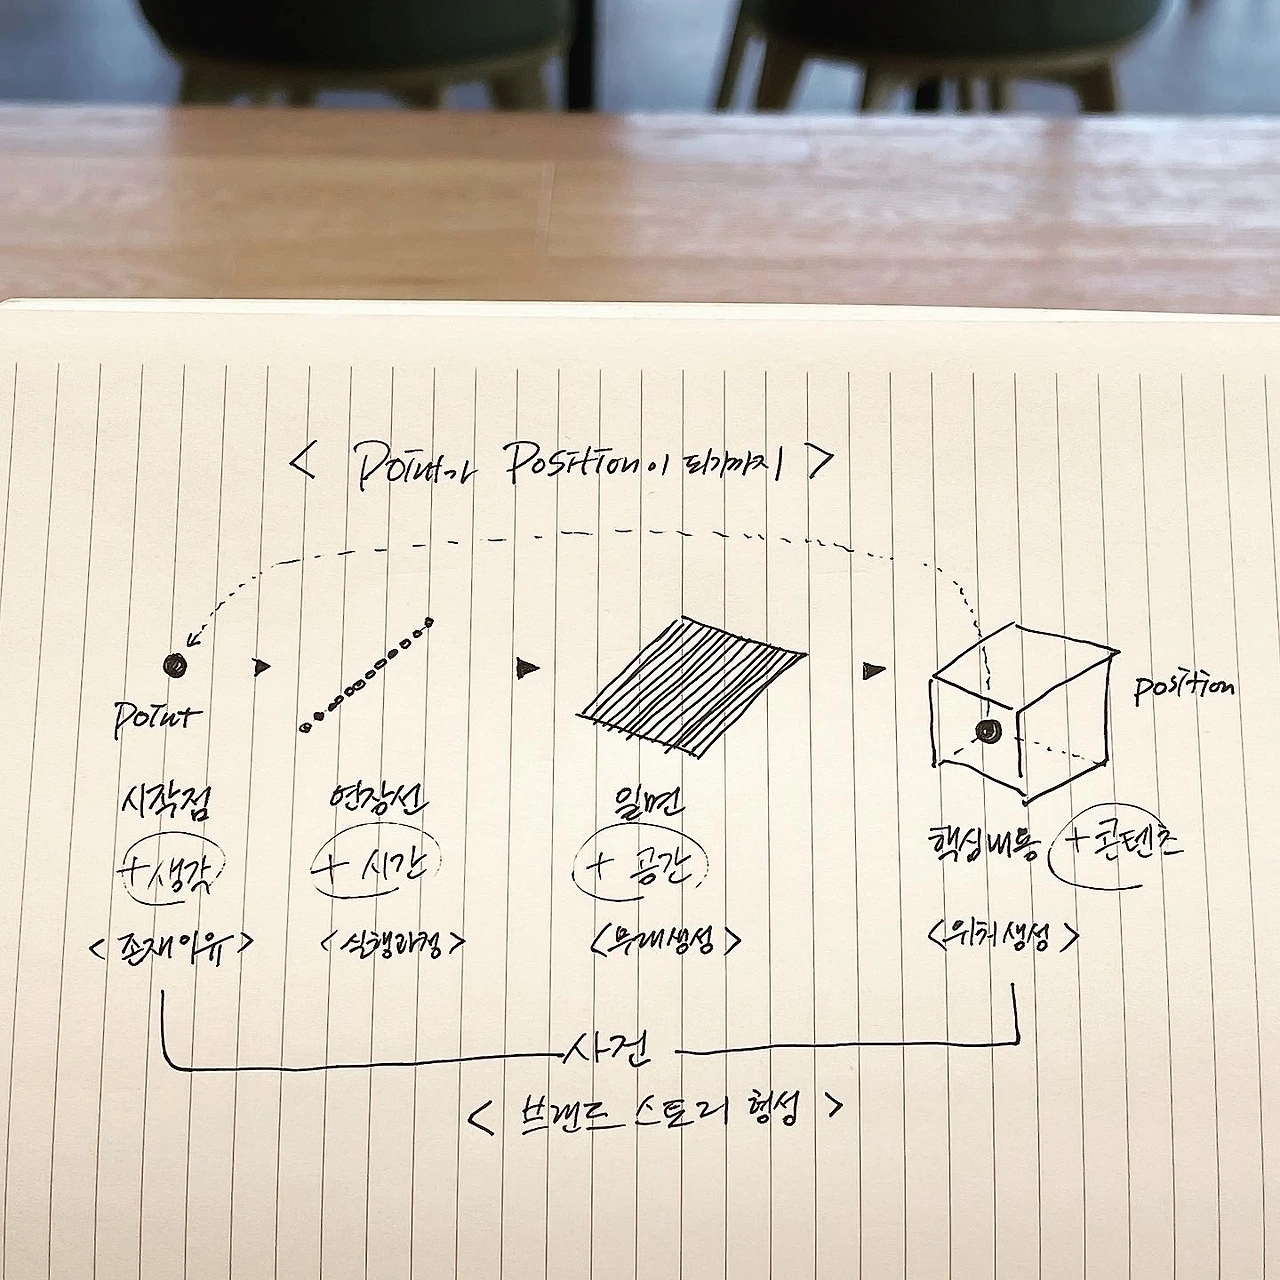 < Point가 Position이 되기까지 >
Point
position
시작점
연장선
일면
핵심내용
+ 생각
+ 시간
+ 공간
+ 콘텐츠
< 존재이유 >
< 실행과정 >
< 무대생성 >
< 위치생성 >
사건
< 브랜드 스토리 형성 >